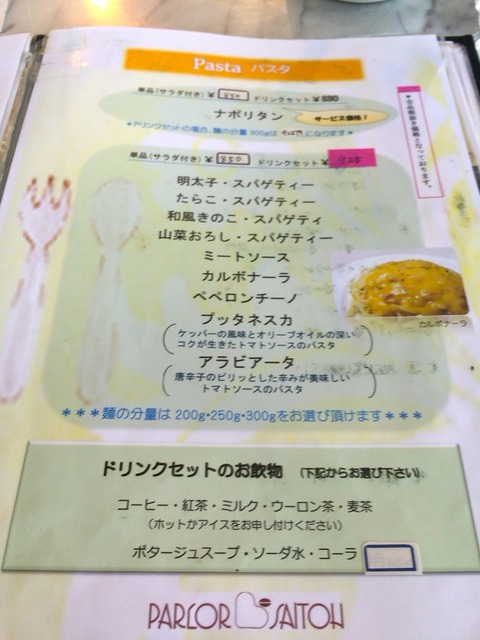 Pasta パスタ
単品(サラダ付き)¥850 ドリンクセット¥880
ナポリタン サービス価格!
＊ドリンクセットの場合、麺の分量 300gは になります＊
単品(サラダ付き)¥850 ドリンクセット¥925
明太子・スパゲティー
たらこ・スパゲティー
和風きのこ・スパゲティ
山菜おろし・スパゲティー
ミートソース
カルボナーラ
ペペロンチーノ
カルボナーラ
プッタネスカ
ケッパーの風味とオリーブオイルの深い
コクが生きたトマトソースのパスタ
アラビアータ
唐辛子のピリッとした辛みが美味しい
トマトソースのパスタ
＊＊＊麺の分量は 200g・250g・300gをお選び頂けます＊＊＊
＊全品税抜き価格となっております。
ドリンクセットのお飲物 (下記からお選び下さい)
コーヒー・紅茶・ミルク・ウーロン茶・麦茶
(ホットかアイスをお申し付けください)
ポタージュスープ・ソーダ水・コーラ
PARLOR SAITOH